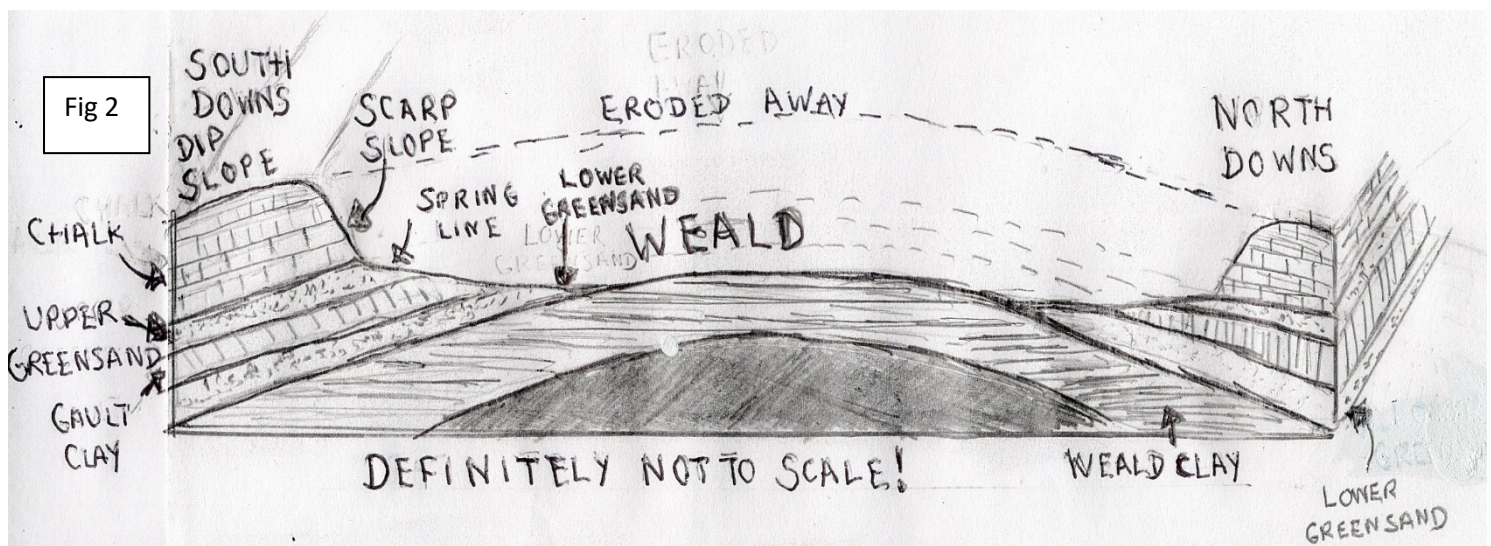 Fig 2
SOUTH
DOWNS
DIP
SLOPE
SCARP
SLOPE
ERODED
AWAY
ERODED AWAY
NORTH
DOWNS
SPRING
LINE
LOWER
GREENSAND
LOWER
GREENSAND
WEALD
CHALK
CHALK
UPPER
GREENSAND
GAULT
CLAY
DEFINITELY NOT TO SCALE!
WEALD CLAY
LOWER
GREENSAND